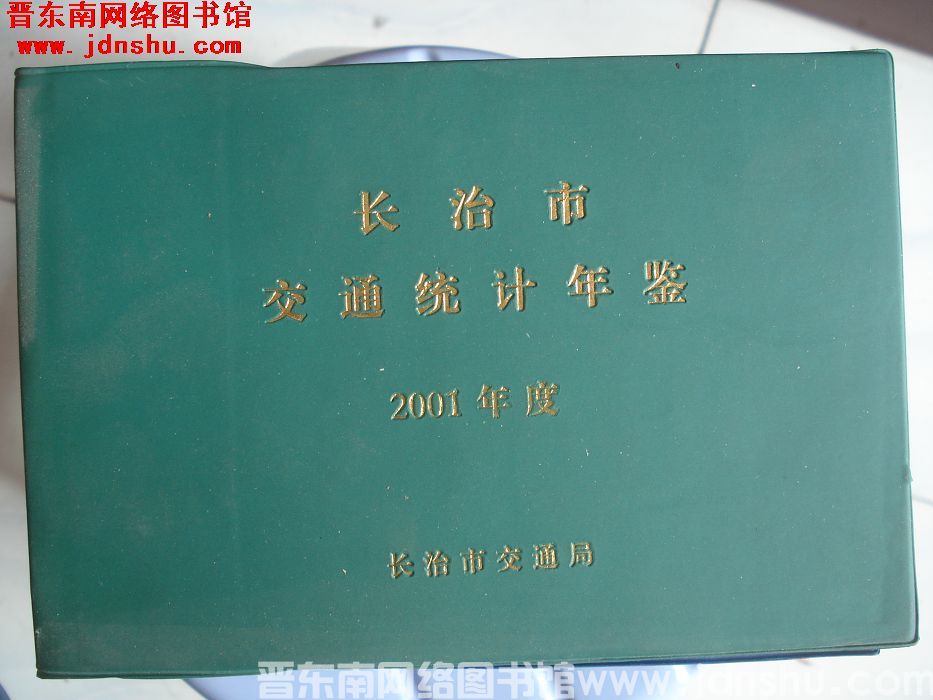 晋东南网络图书馆
www. jdnshu. com
长治市
交通统计年鉴
2001年度
长治市交通局
晋东南网络图书馆 www.jdnshu.com